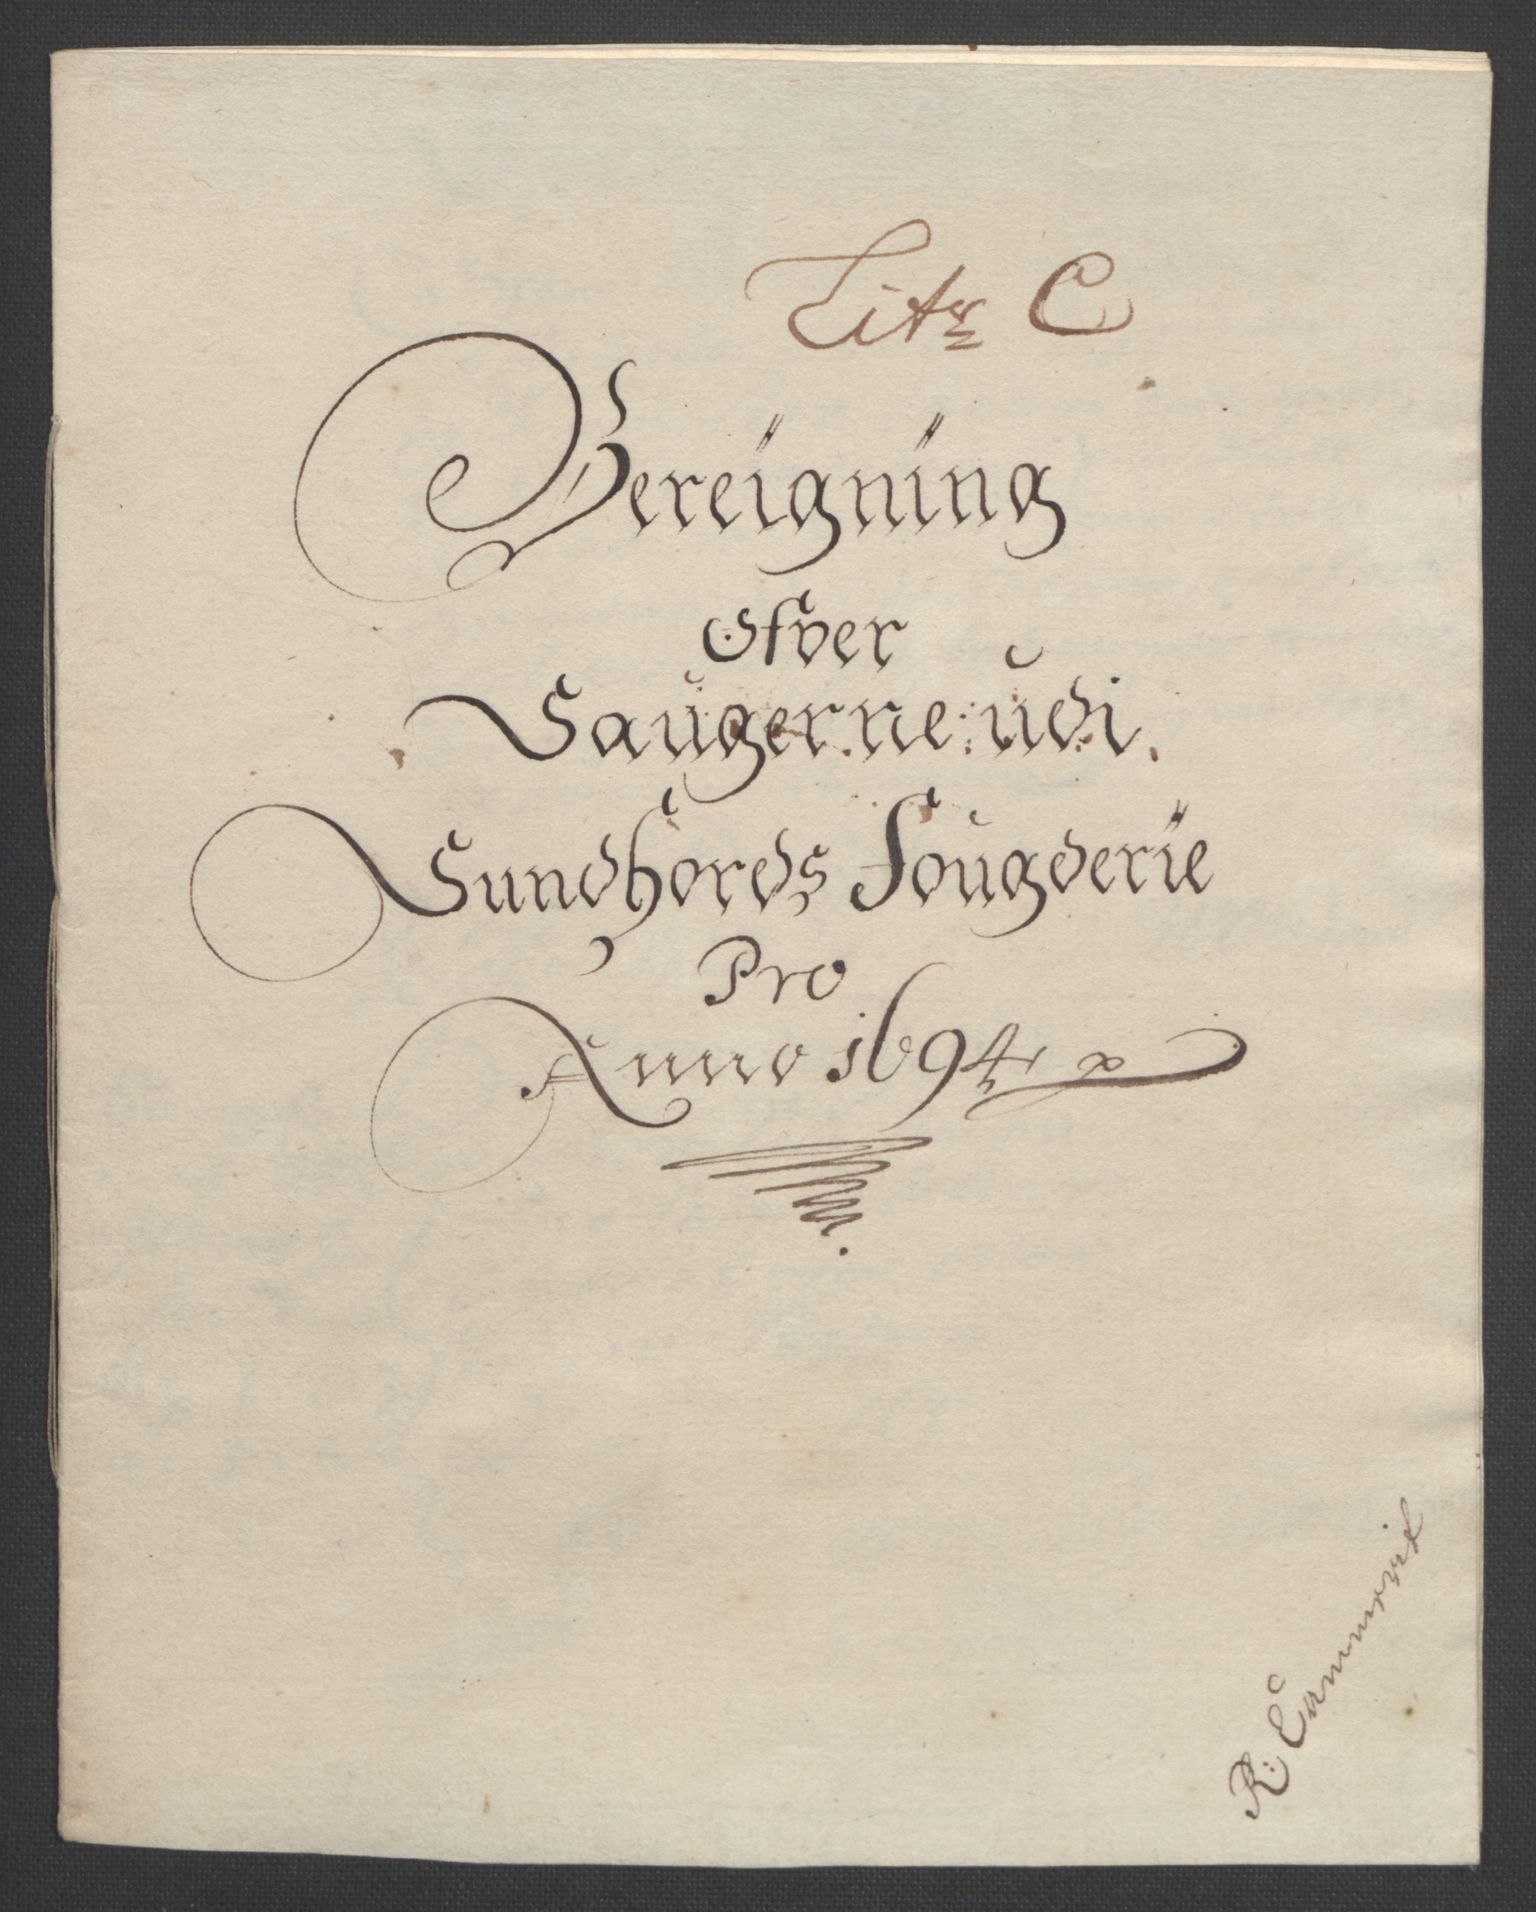 Litr C
Bereigning
Ofver
Saugerne udi
Sundhords Fougderie
Pro
Anno 1694
R: Cammerit